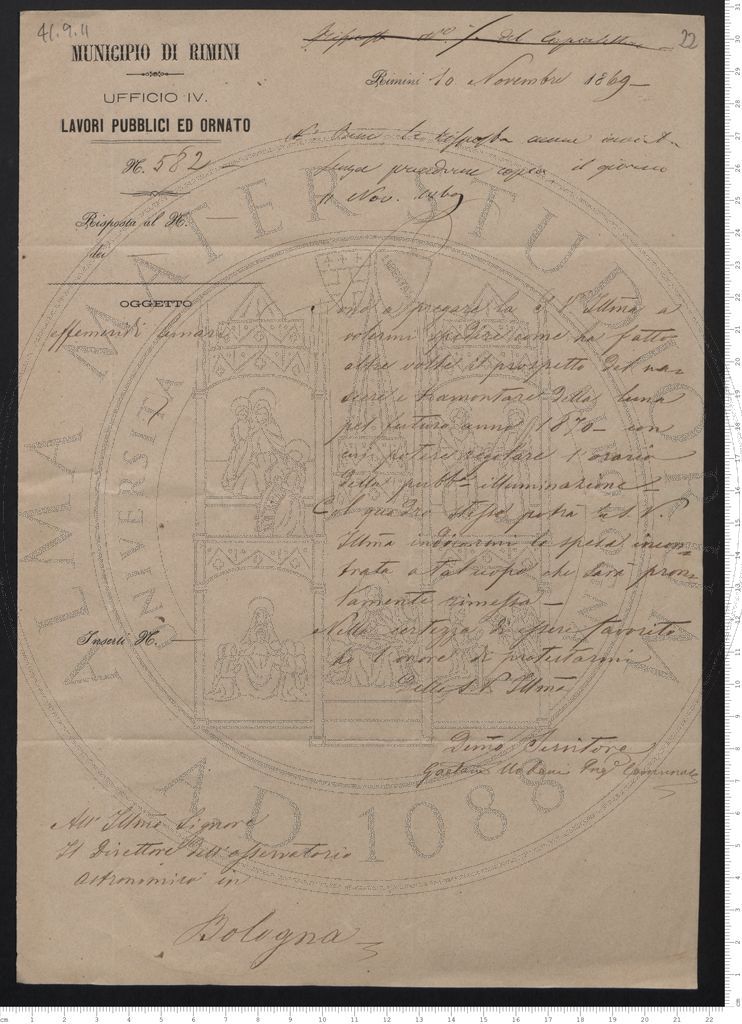 41.9.11
22
MUNICIPIO DI RIMINI
UFFICIO IV.
LAVORI PUBBLICI ED ORNATO
N. 582
Risposta al N. —
dei —
Rimini 10 Novembre 1869
Bene la risposta
senza prenderne copia il giorno
11 Nov.
OGGETTO
effemeridi lunari
Sono a pregare la S. V. Illma a
volermi spedire come ha fatto
altre volte il prospetto del na-
scere e tramontare della luna
pel futuro anno 1870 con
cui potere regolare l'orario
della pubba illuminazione
Col quadro stesso potrà la S. V.
Illma indicarmi la spesa incon-
trata a tal uopo che sarà pron-
tamente rimessa —
Nella certezza di essere favorito
ho l'onore di protestarmi
Della S. V. Illma
Inserti N. —
Devmo Servitore
Gaetano Urbani Ingre Comunale
All' Illmo Signore
Il Direttore dell'osservatorio
astronomico in
Bologna
ALMA MATER STUDIORUM
UNIVERSITÀ
A.D. 1088